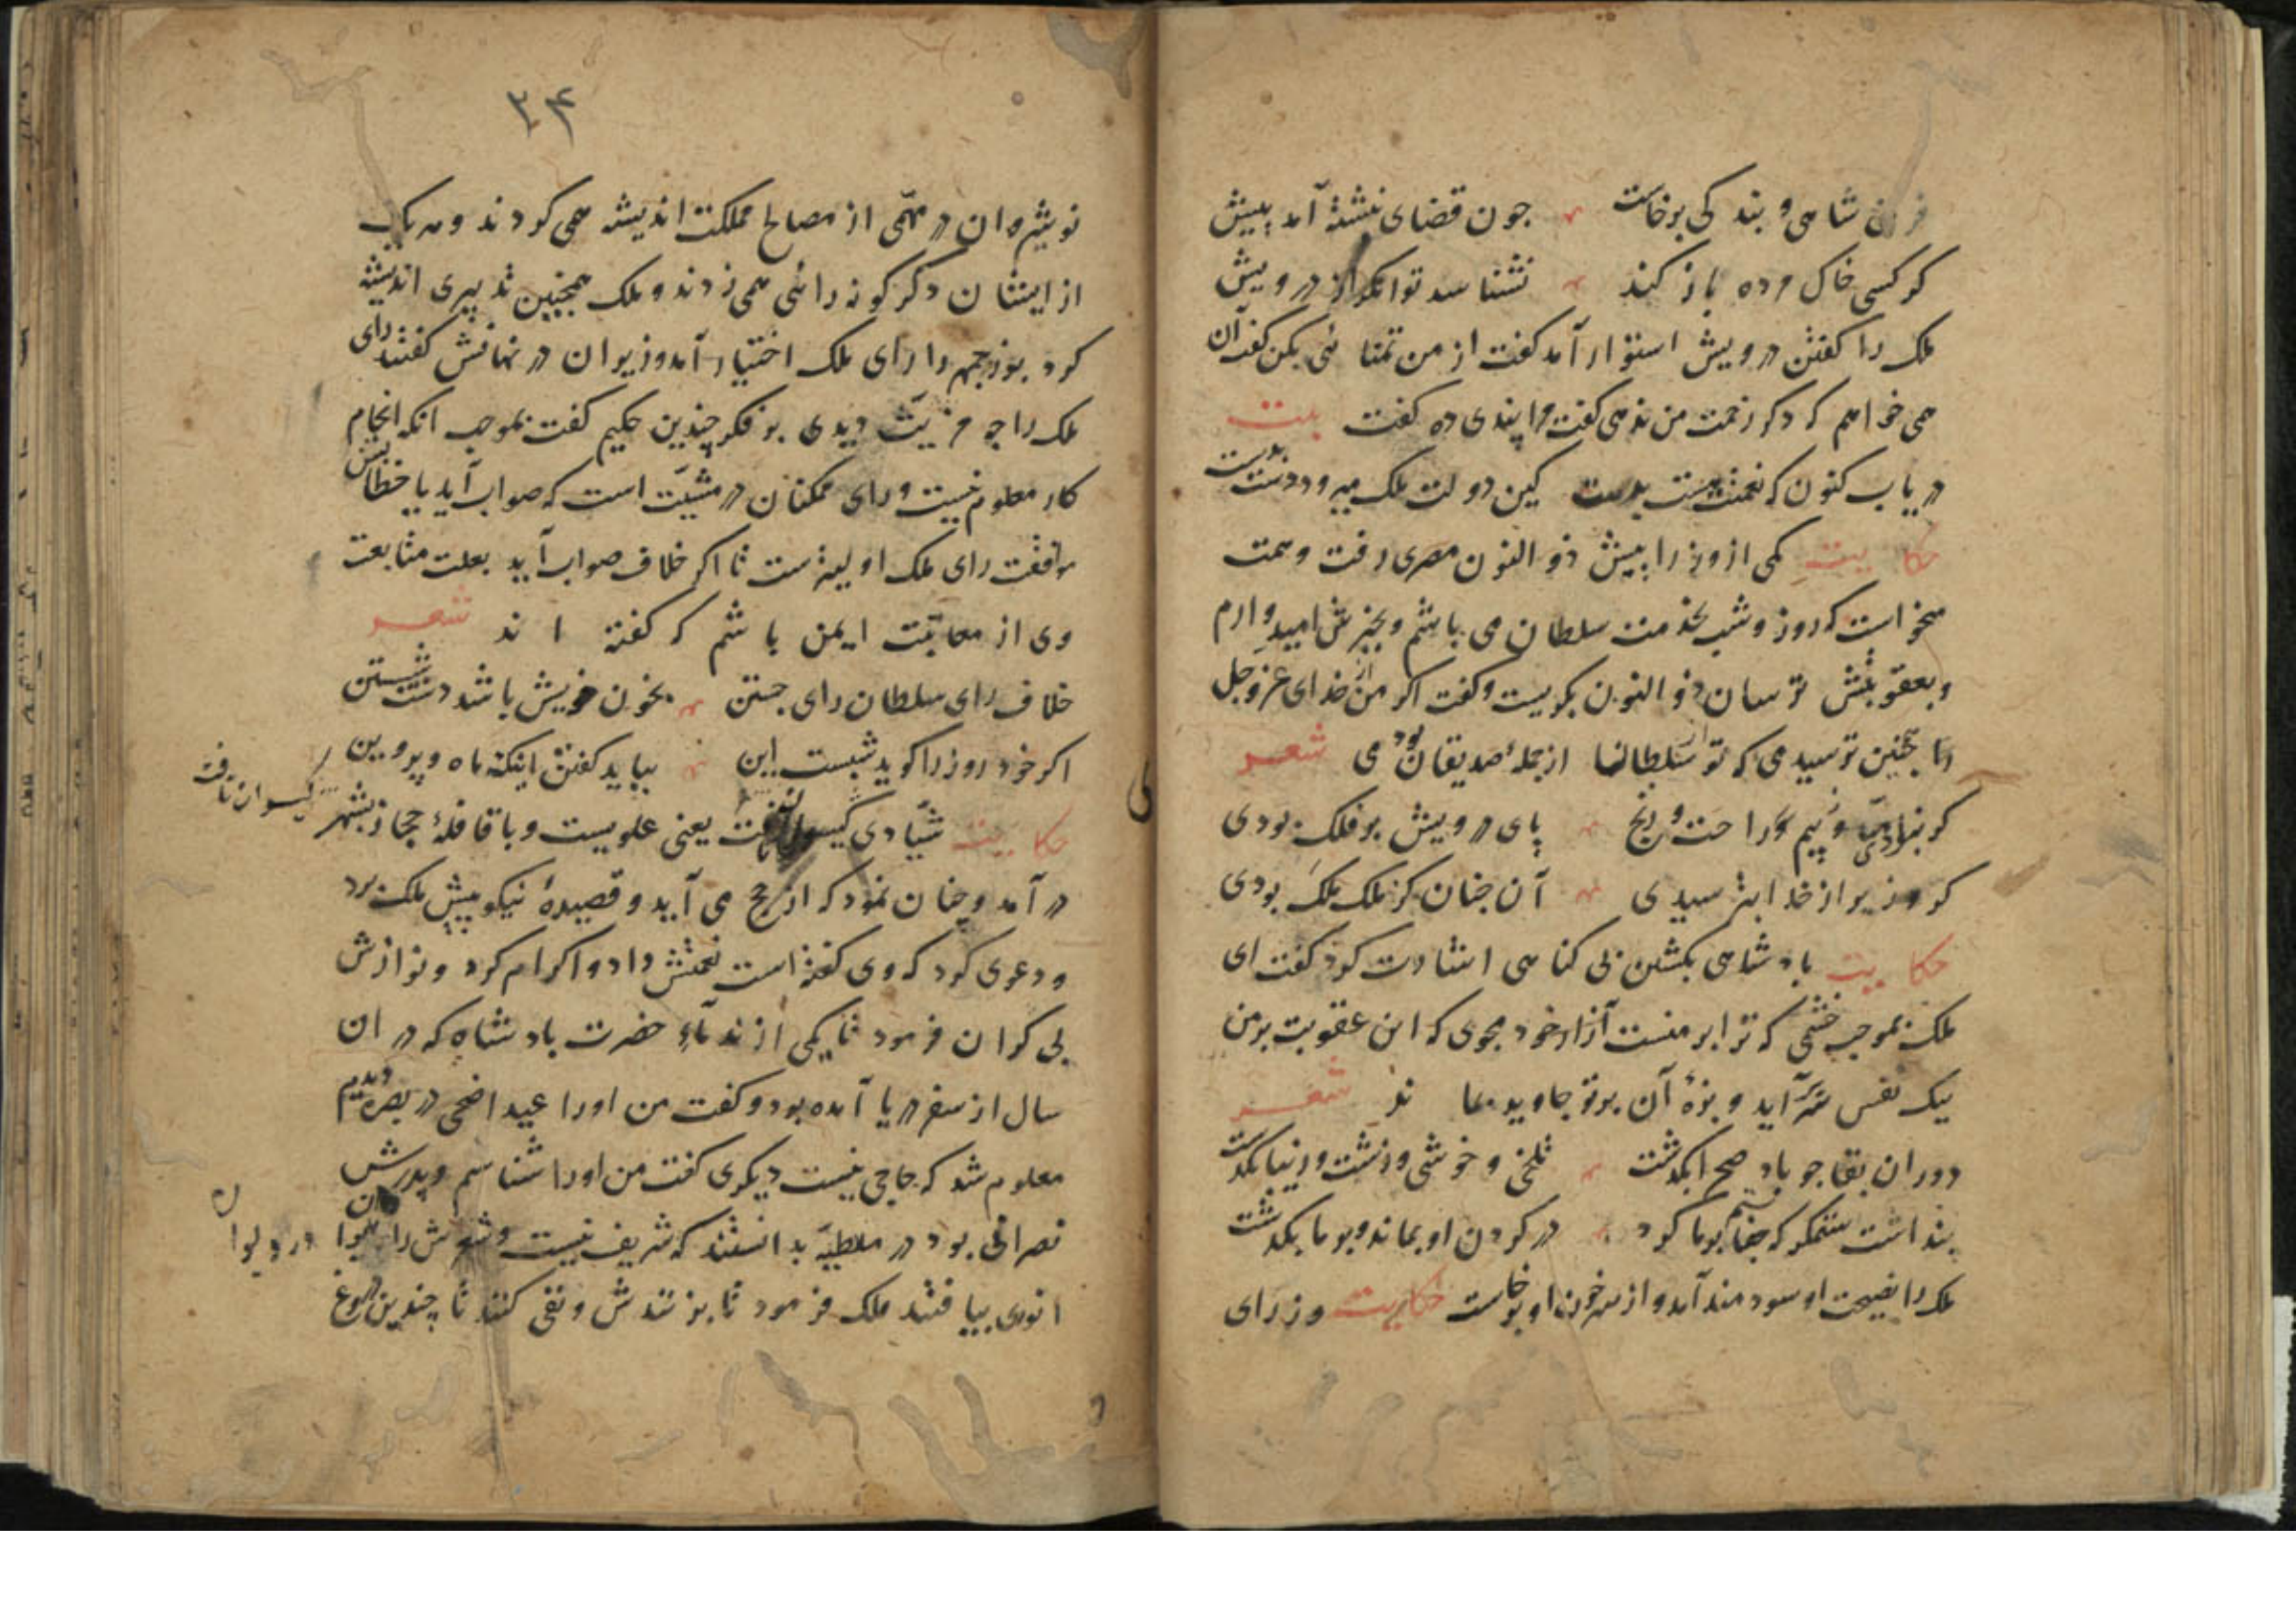 فرق شاهی و بندگی برخاست چون قضای نبشته آمد پیش
گر کسی خاک مرده باز کند نشناسد توانگر از درویش
ملک را گفتن درویش استوار آمد گفت از من تمنائی بکن گفت آن
می خواهم که دگر زحمت من ندهی گفت مرا پندی ده گفت بیت
دریاب کنون که نعمتت هست بدست کین دولت ملک میرود دست بدست
حکایت یکی از وزرا پیش ذو النون مصری رفت و همت
میخواست که روز و شب بخدمت سلطان می باشم و بخیرش امیدوارم
و بعقوبتش ترسان ذو النون بگریست و گفت اگر من از خدای عز و جل
را چنین ترسیدمی که تو از سلطان از جمله صدیقان بودمی شعر
گر نبودی امید و بیم راحت و رنج پای درویش بر فلک بودی
گر وزیر از خدا بترسیدی آن چنان کز ملک ملک بودی
حکایت پادشاهی بکشتن بی کناهی اشارت کرد گفت ای
ملک بموجب خشمی که ترا بر منست آزار خود مجوی که این عقوبت بر من
یک نفس سر آید و بزهٔ آن بر تو جاوید بماند شعر
دوران بقا چو باد صحرا بگذشت تلخی و خوشی و زشت و زیبا بگذشت
پنداشت ستمگر که جفا بر ما کرد در گردن او بماند و بر ما بگذشت
ملک را نصیحت او سودمند آمد و از سر خون او برخاست حکایت وزرای
۳۴
نوشیروان در مهمی از مصالح مملکت اندیشه همی کردند و هر یک
از ایشان دگر گونه رائی همی زدند و ملک همچنین تدبیری اندیشه
کرد بوزرجمهر را رای ملک اختیار آمد وزیران در نهانش گفتند رای
ملک را چه مزیت دیدی بر فکر چندین حکیم گفت بموجب آنکه انجام
کار معلوم نیست و رای همکنان در مشیت است که صواب آید یا خطا پس
موافقت رای ملک اولیترست تا اگر خلاف صواب آید بعلت متابعت
وی از معاتبت ایمن باشم که گفته اند شعر
خلاف رای سلطان رای جستن بخون خویش باشد دست شستن
اگر خود روز را گوید شبست این بباید گفتن اینک ماه و پروین
حکایت شیادی گیسوان بافت یعنی علویست و با قافلهٔ حجاز بشهر
گیسوان تافت
در آمد و چنان نمود که از حج می آید و قصیدهٔ نیکو پیش ملک برد
و دعوی کرد که وی گفته است نعمتش داد و اکرام کرد و نوازش
بی کران فرمود تا یکی از ندماء حضرت پادشاه که در ان
سال از سفر دریا آمده بود و گفت من او را عید اضحی در بصره دیدم
معلوم شد که حاجی نیست دیگری گفت من او را شناسم و پدرش
نصرانی بود در ملطیه بدانستند که شریف نیست و شعرش را
در دیوان
انوری بیافتند ملک فرمود تا بزنندش و نفی کنند تا چندین دروغ